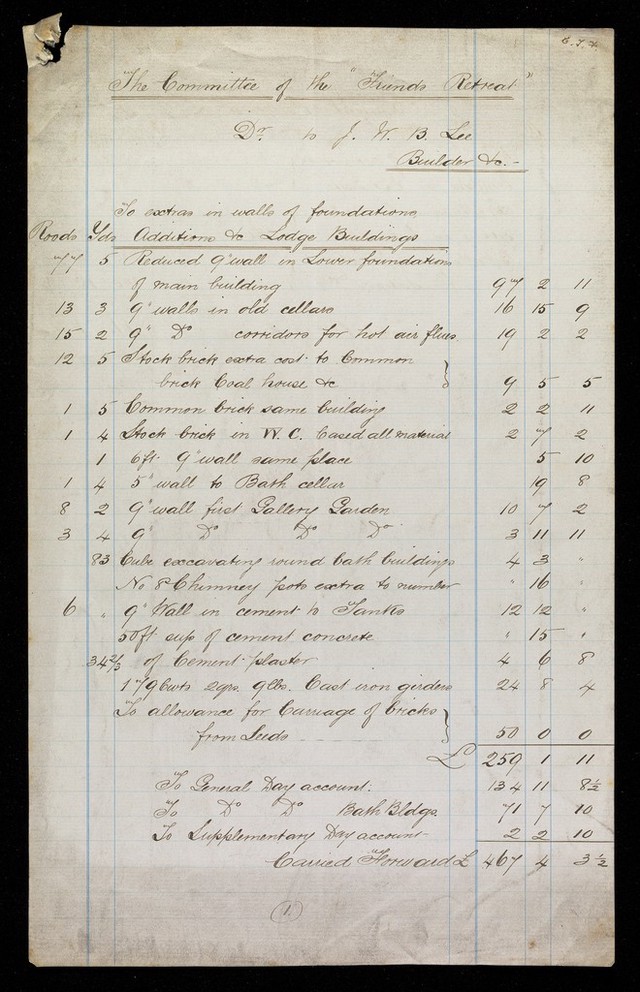 The Committee of the "Friends Retreat"
Dr. to J. W. B. Lee
Builder &c. -
To extras in walls of foundations
Roods Yds Additions &c Lodge Buildings
77 5 Reduced 9" wall in Lower foundations
of main building 97 2 11
13 3 9" walls in old cellars 16 15 9
15 2 9" Do corridors for hot air flues 19 2 2
12 5 Stock brick extra cost to Common
brick Coal house &c 9 5 5
1 5 Common brick same building 2 2 11
1 4 Stock brick in W.C. Cased all material 2 7 2
1 6ft. 9" wall same place 5 10
1 4 5" wall to Bath cellar 19 8
8 2 9" wall first Gallery Garden 10 7 2
3 4 9" Do Do Do 3 11 11
83 Cube excavating round bath buildings 4 3 "
No 8 Chimney pots extra to number " 16 "
6 " 9" Wall in cement to Tanks 12 12 "
50ft sup of cement concrete " 15 "
34 2/3 of Cement plaster 4 6 8
179cwts 2qrs. 9lbs. Cast iron girders 24 8 4
To allowance for Carriage of bricks
from Leeds 50 0 0
£ 259 1 11
To General Day account. 134 11 8½
To Do Do Bath Bldgs. 71 7 10
To Supplementary Day account 2 2 10
Carried Forward £ 467 4 3½
(1)